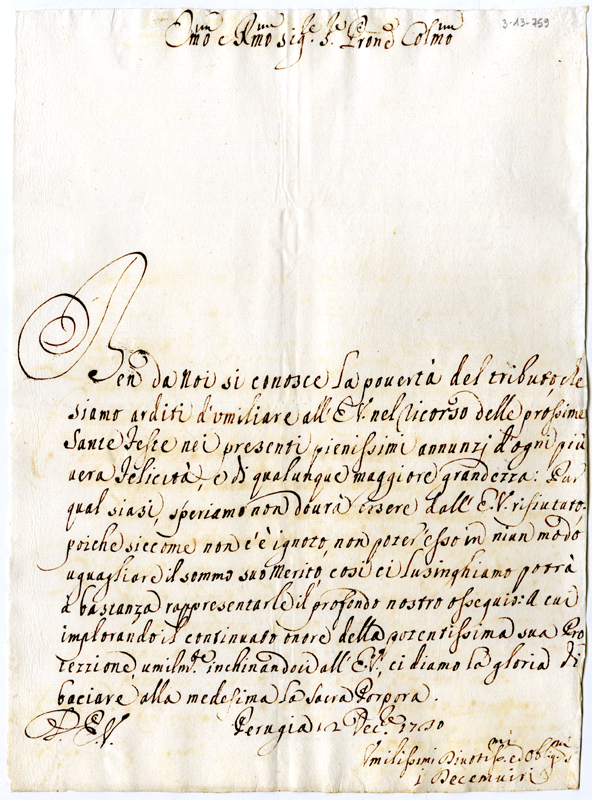 3-13-759
Emo e Rmo Sig.re S.re Prone Colmo
Ben da Noi si conosce la povertà del tributo, che
siamo arditi d'umiliare all'E.V. nel ricorso delle prossime
Sante Feste nei presenti pienissimi annunzj d'ogni più
vera felicità, e di qualunque maggiore grandezza: Pur
qual siasi, speriamo non dovrà essere dall'E.V. rifiutato,
poiche siccome non c'è ignoto, non poter'esso in niun modo
uguagliare il sommo suo Merito, così ci lusinghiamo potrà
à bastanza rappresentarle il profondo nostro ossequio: A cui
implorando il continuato onore della potentissima sua Pro
tezzione, umilm.te inchinandoci all'E.V., ci diamo la gloria di
baciare alla medesima la Sacra Porpora.
D. E.V. Perugia 12 Dec.e
Umilissimi Divotiss.mi ed Oblig.mi S.ri
i Decemviri